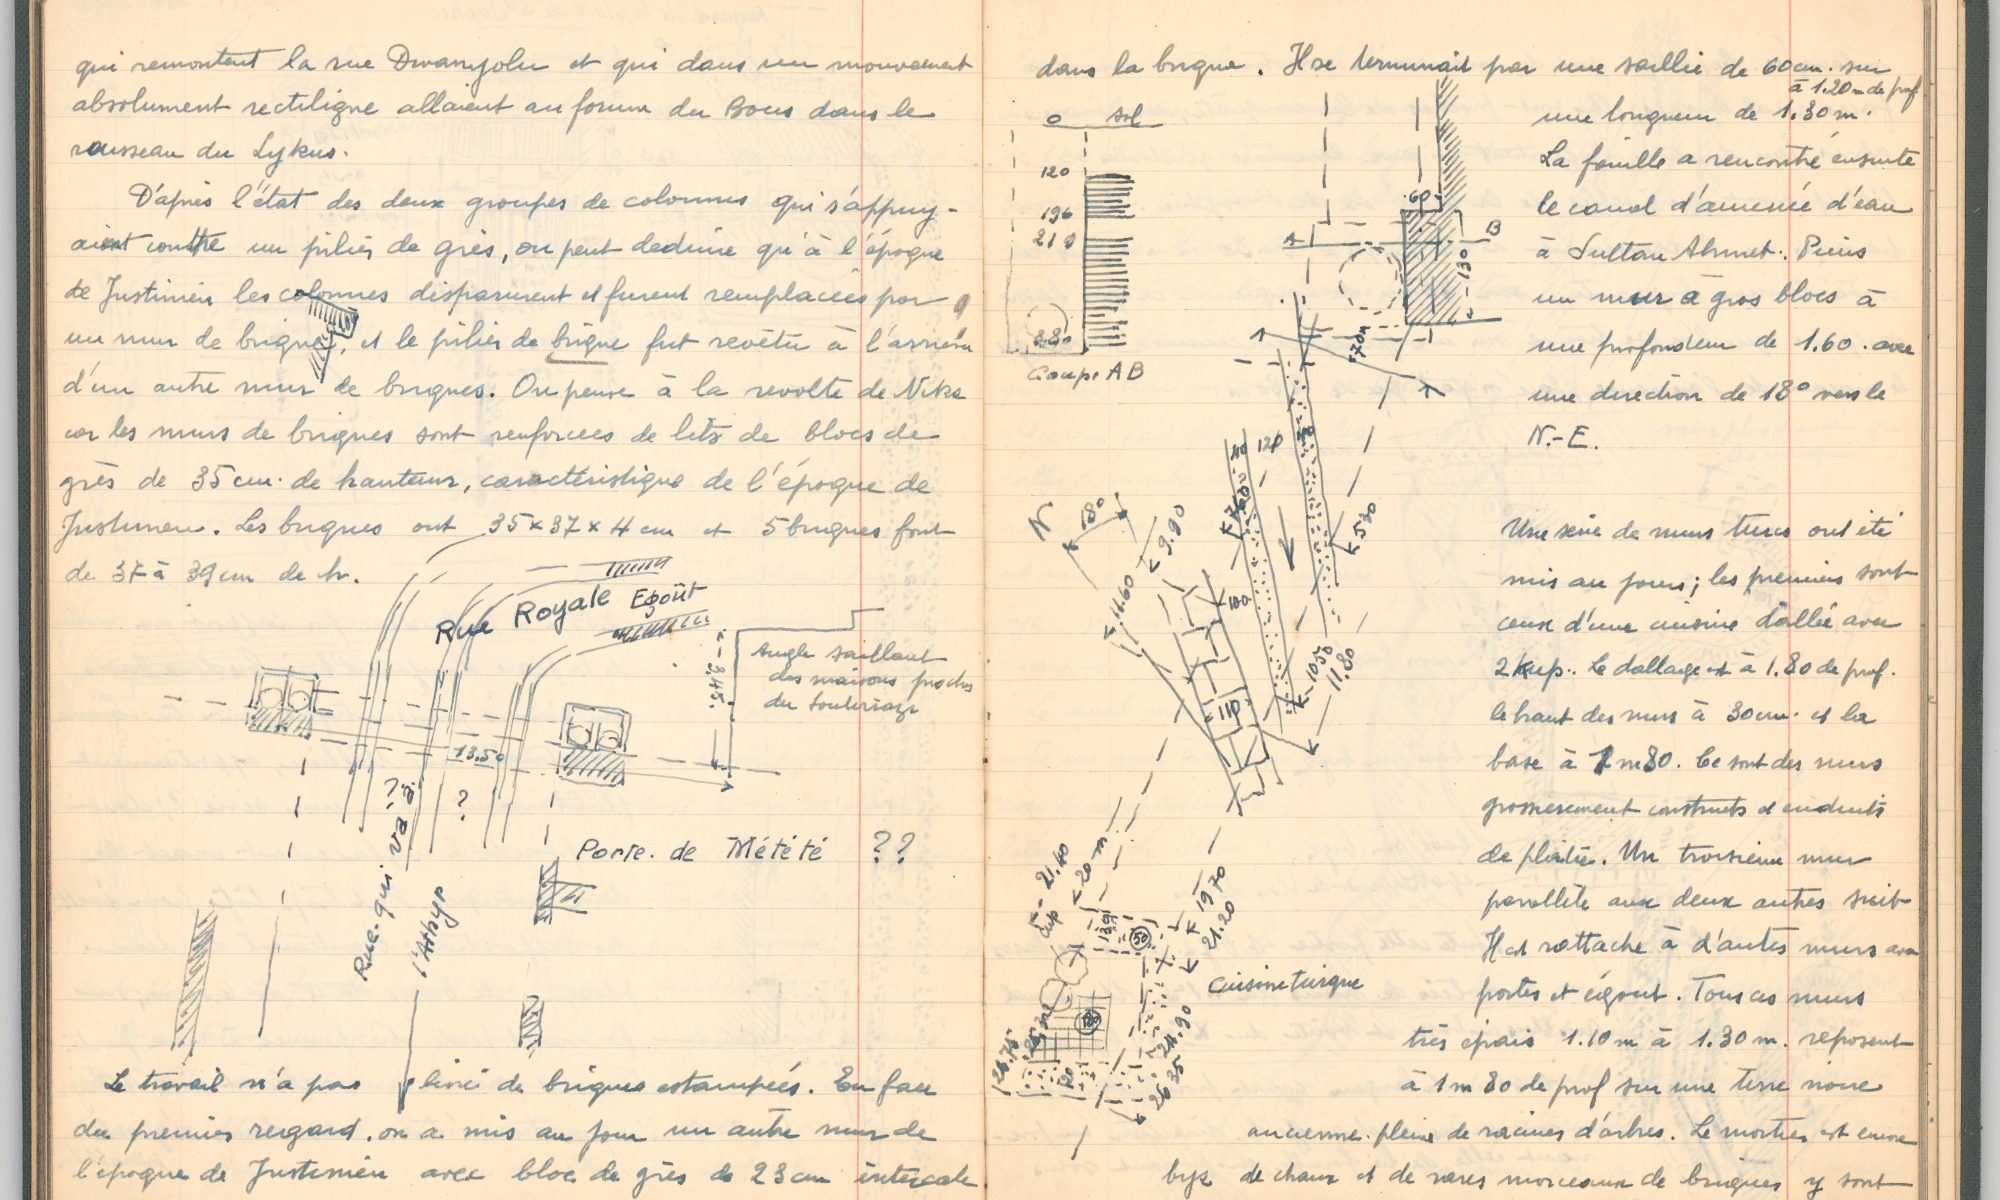 qui remontent la rue Divanyolu et qui dans un mouvement
absolument rectiligne allaient au forum du Bous dans le
ruisseau du Lykus.
D'après l'état des deux groupes de colonnes qui s'appuy-
aient contre un pilier de grès, on peut deduire qu'à l'époque
de Justinien les colonnes disparurent et furent remplacées par
un mur de brique, et le pilier de brique fut revêtu à l'arrière
d'un autre mur de briques. On pense à la revolte de Nika
car les murs de briques sont renforcees de lits de blocs de
grès de 35 cm. de hauteur, caractéristique de l'époque de
Justinien. Les briques ont 35 x 37 x 4 cm et 5 briques font
de 37 à 39 cm de h.
Rue Royale Egoût
Angle saillant
des maisons proches
du souterrain
3,45
13,50
? ?
Rue qui va à
l'Athyr
Porte de Mété té ??
Le travail n'a pas livré de briques estampées. En face
du premier regard, on a mis au jour un autre mur de
l'époque de Justinien avec bloc de grès de 23 cm intercale
dans la brique. Il se terminait par une saillie de 60 cm. sur
à 1.20 m de prof
une longueur de 1.30 m.
La fouille a rencontré ensuite
le canal d'amenée d'eau
à Sultan Ahmet. Puis
un mur à gros blocs à
une profondeur de 1.60. avec
une direction de 18° vers le
N.-E.
0 sol
120
196
210
280
Coupe AB
60
A B
130
70
N
180
9.90
11.60
120
530
100
110
1050
11.80
Une série de murs turcs ont été
mis au jour; les premiers sont
ceux d'une cuisine dallée avec
2 kup. Le dallage est à 1.80 de prof.
le haut des murs à 30 cm. et la
base à 1 m 80. Ce sont des murs
grossierement construits et enduits
de plâtre. Un troisième mur
parallèle aux deux autres suit
Il est rattache à d'autres murs avec
portes et égout. Tous ces murs
très épais 1.10 m à 1.30 m. reposent
à 1 m 80 de prof sur une terre noire
ancienne pleine de racines d'arbres. Le mortier est encore
de chaux et de rares morceaux de briques y sont
21.40
20 m
Cup
130
50
1970
21.20
cuisine turque
24.90
26.35
26.75